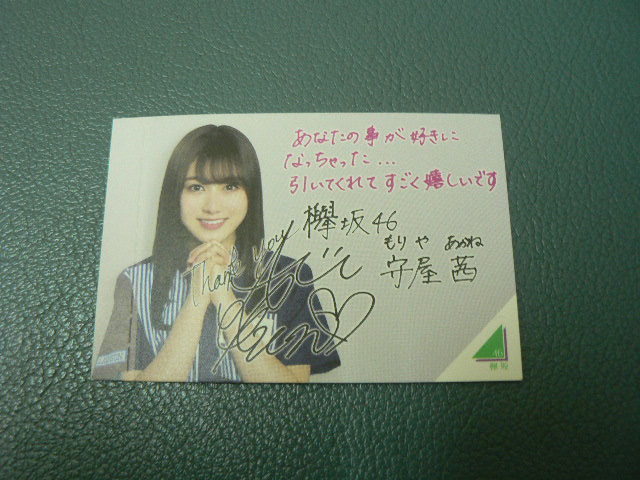 あなたの事が好きに
なっちゃった...
引いてくれてすごく嬉しいです
欅坂46
もりや あかね
守屋 茜
Thank you
46
欅坂